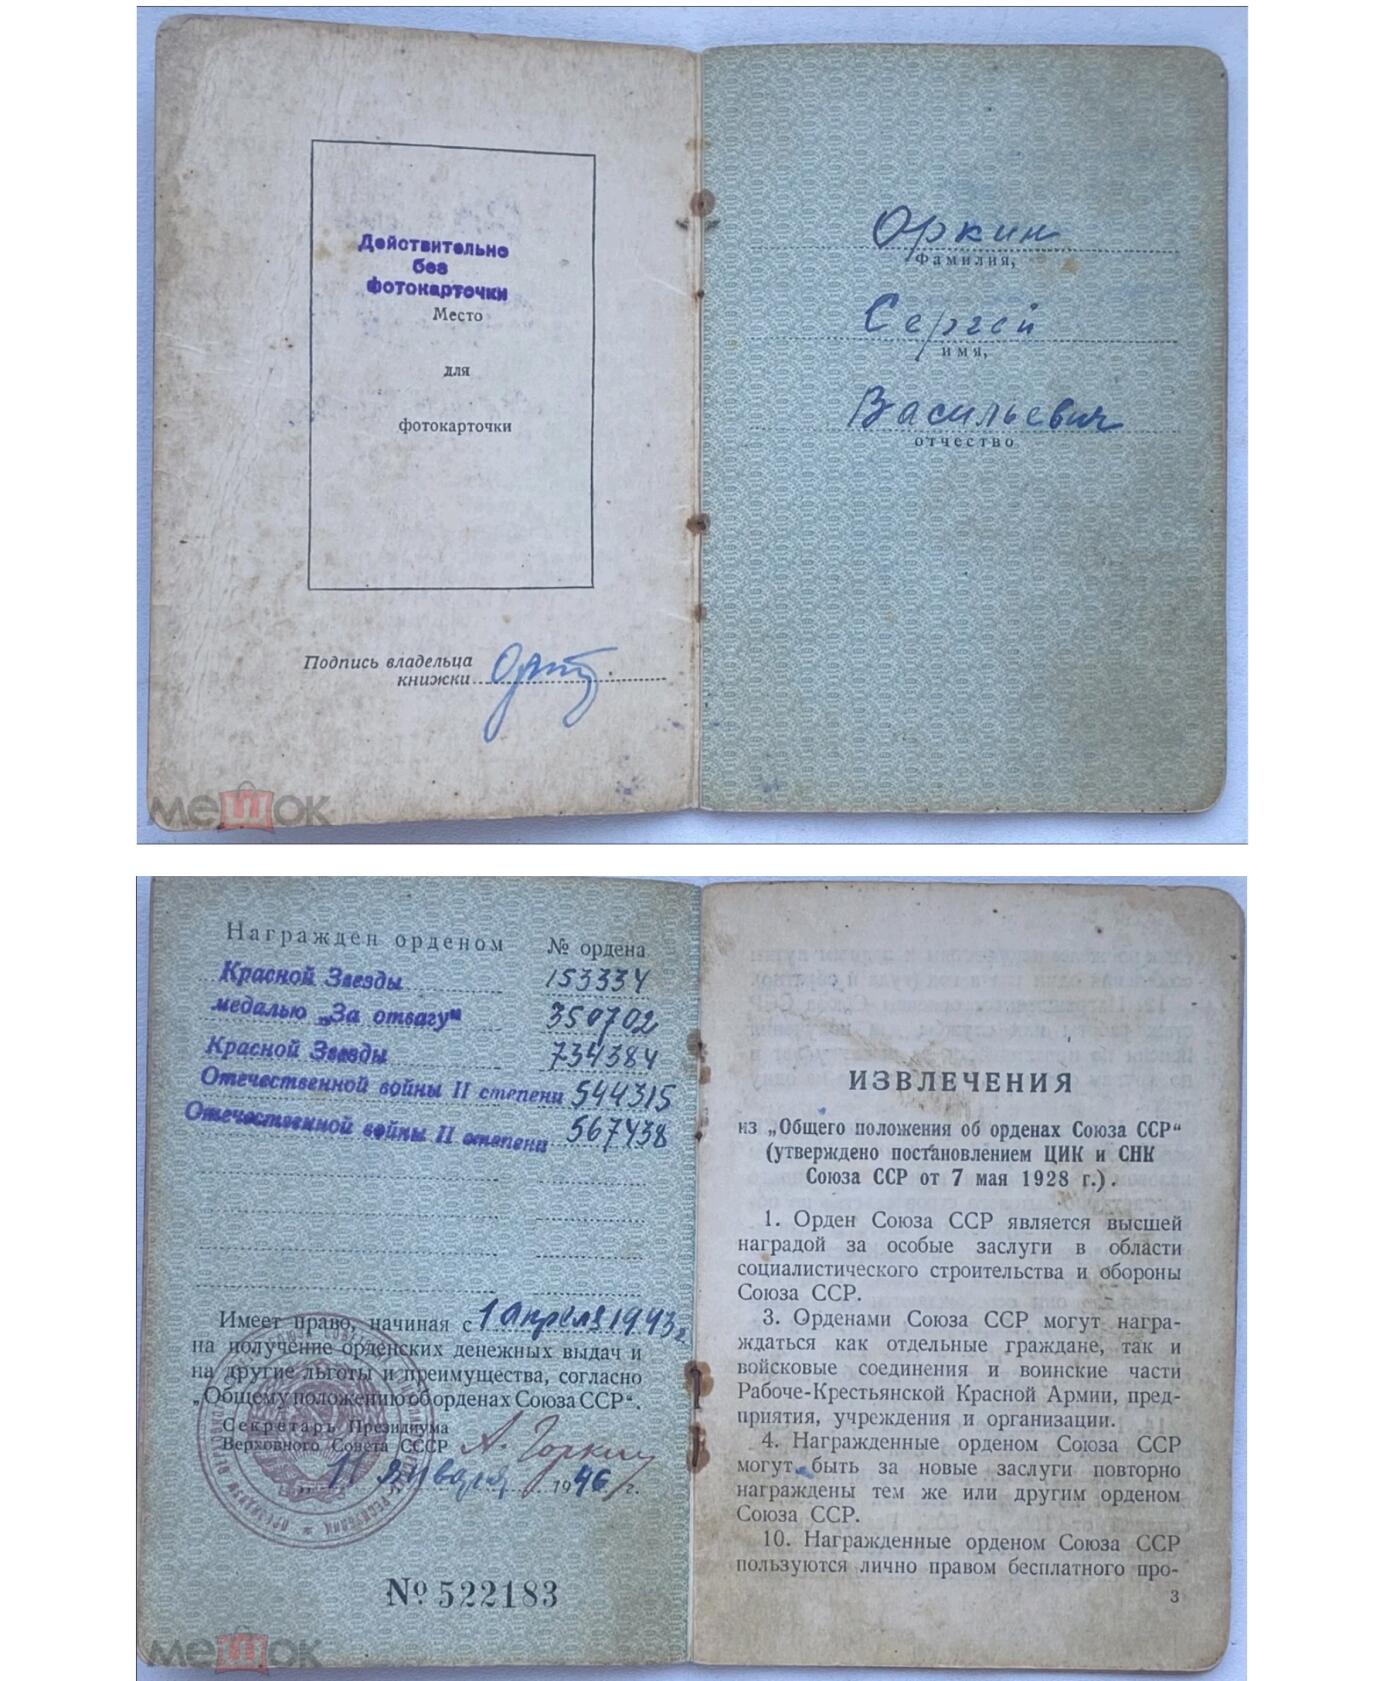 Действительно
без
фотокарточки
Место
для
фотокарточки
Подпись владельца
книжки
Оркин
фамилия,
Сергей
имя,
Васильевич
отчество
мешок
Награжден орденом № ордена
Красной Звезды 153334
медалью „За отвагу“ 350702
Красной Звезды 734384
Отечественной войны II степени 544315
Отечественной войны II степени 567438
Имеет право, начиная с 1 апреля 1943 г.
на получение орденских денежных выдач и
на другие льготы и преимущества, согласно
„Общему положению об орденах Союза ССР“.
Секретарь Президиума
Верховного Совета СССР А. Горкин
11 января 1946 г.
№ 522183
мешок
ИЗВЛЕЧЕНИЯ
из „Общего положения об орденах Союза ССР“
(утверждено постановлением ЦИК и СНК
Союза ССР от 7 мая 1928 г.).
1. Орден Союза ССР является высшей
наградой за особые заслуги в области
социалистического строительства и обороны
Союза ССР.
3. Орденами Союза ССР могут награ-
ждаться как отдельные граждане, так и
войсковые соединения и воинские части
Рабоче-Крестьянской Красной Армии, пред-
приятия, учреждения и организации.
4. Награжденные орденом Союза ССР
могут быть за новые заслуги повторно
награждены тем же или другим орденом
Союза ССР.
10. Награжденные орденом Союза ССР
пользуются лично правом бесплатного про-
3